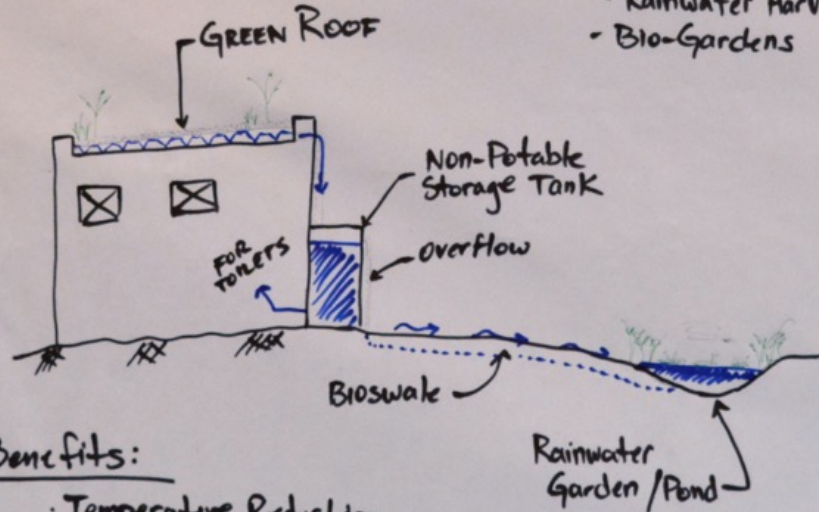 Rainwater Harv
- Bio-Gardens
GREEN ROOF
Non-Potable
Storage Tank
overflow
FOR
TOILETS
Bioswale
Rainwater
Garden/Pond
Benefits: